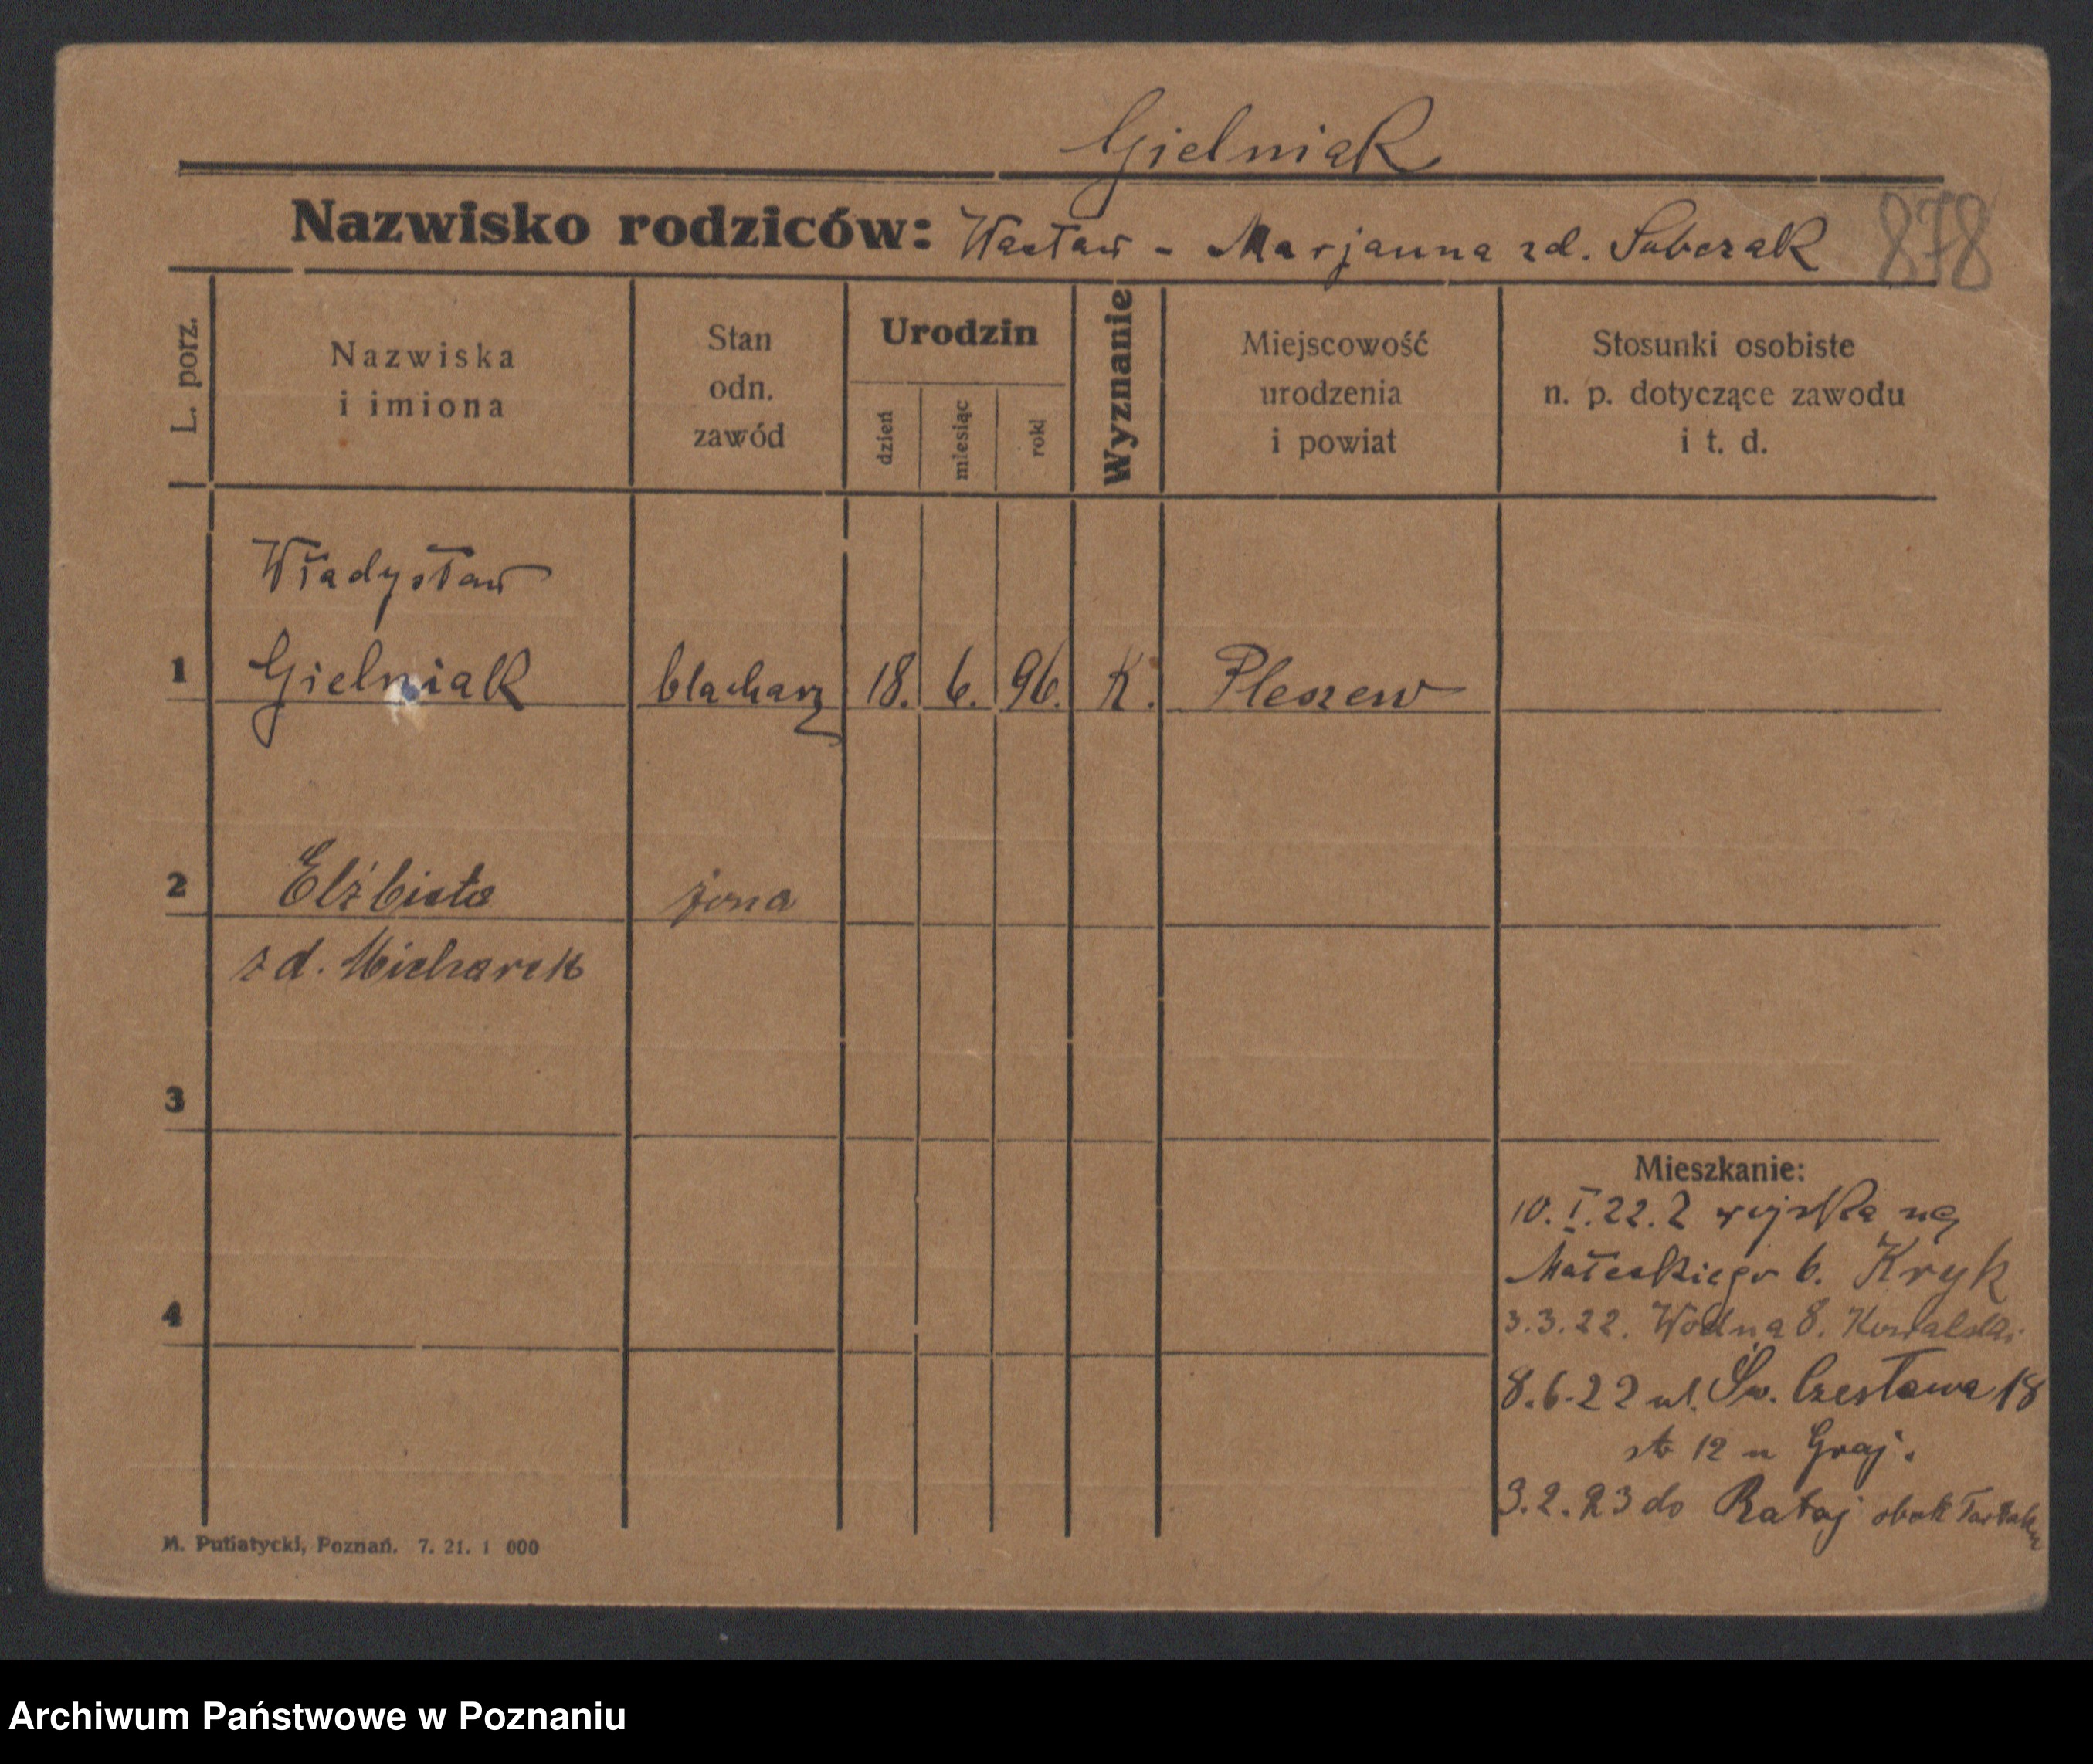 Gielniak
Nazwisko rodziców: Wacław - Marjanna zd. Sobczak 878
L. porz.
Nazwiska
i imiona
Stan
odn.
zawód
Urodzin
dzień
miesiąc
rok
Wyznanie
Miejscowość
urodzenia
i powiat
Stosunki osobiste
n. p. dotyczące zawodu
i t. d.
Władysław
1 Gielniak blacharz 18. 6. 96. K. Pleszew
2 Elżbieta żona
zd.
3
Mieszkanie:
10. I. 22. z wojska na
Małeckiego 6. Kryk
4
3.3.22. Wodna 8. Kowalski
8.6.22 ul. Św. Czesława 18
12 u Graj.
3.2.23 do Rataj obok Tartaku
M. Putiatycki, Poznań. 7. 21. 1 000
Archiwum Państwowe w Poznaniu